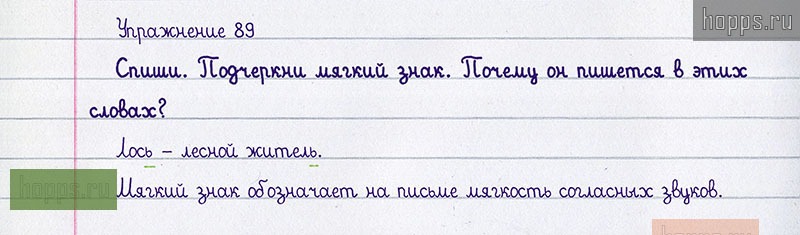 hopps.ru
Упражнение 89
Спиши. Подчеркни мягкий знак. Почему он пишется в этих
словах?
Лось – лесной житель.
hopps.ru
Мягкий знак обозначает на письме мягкость согласных звуков.
hopps.ru